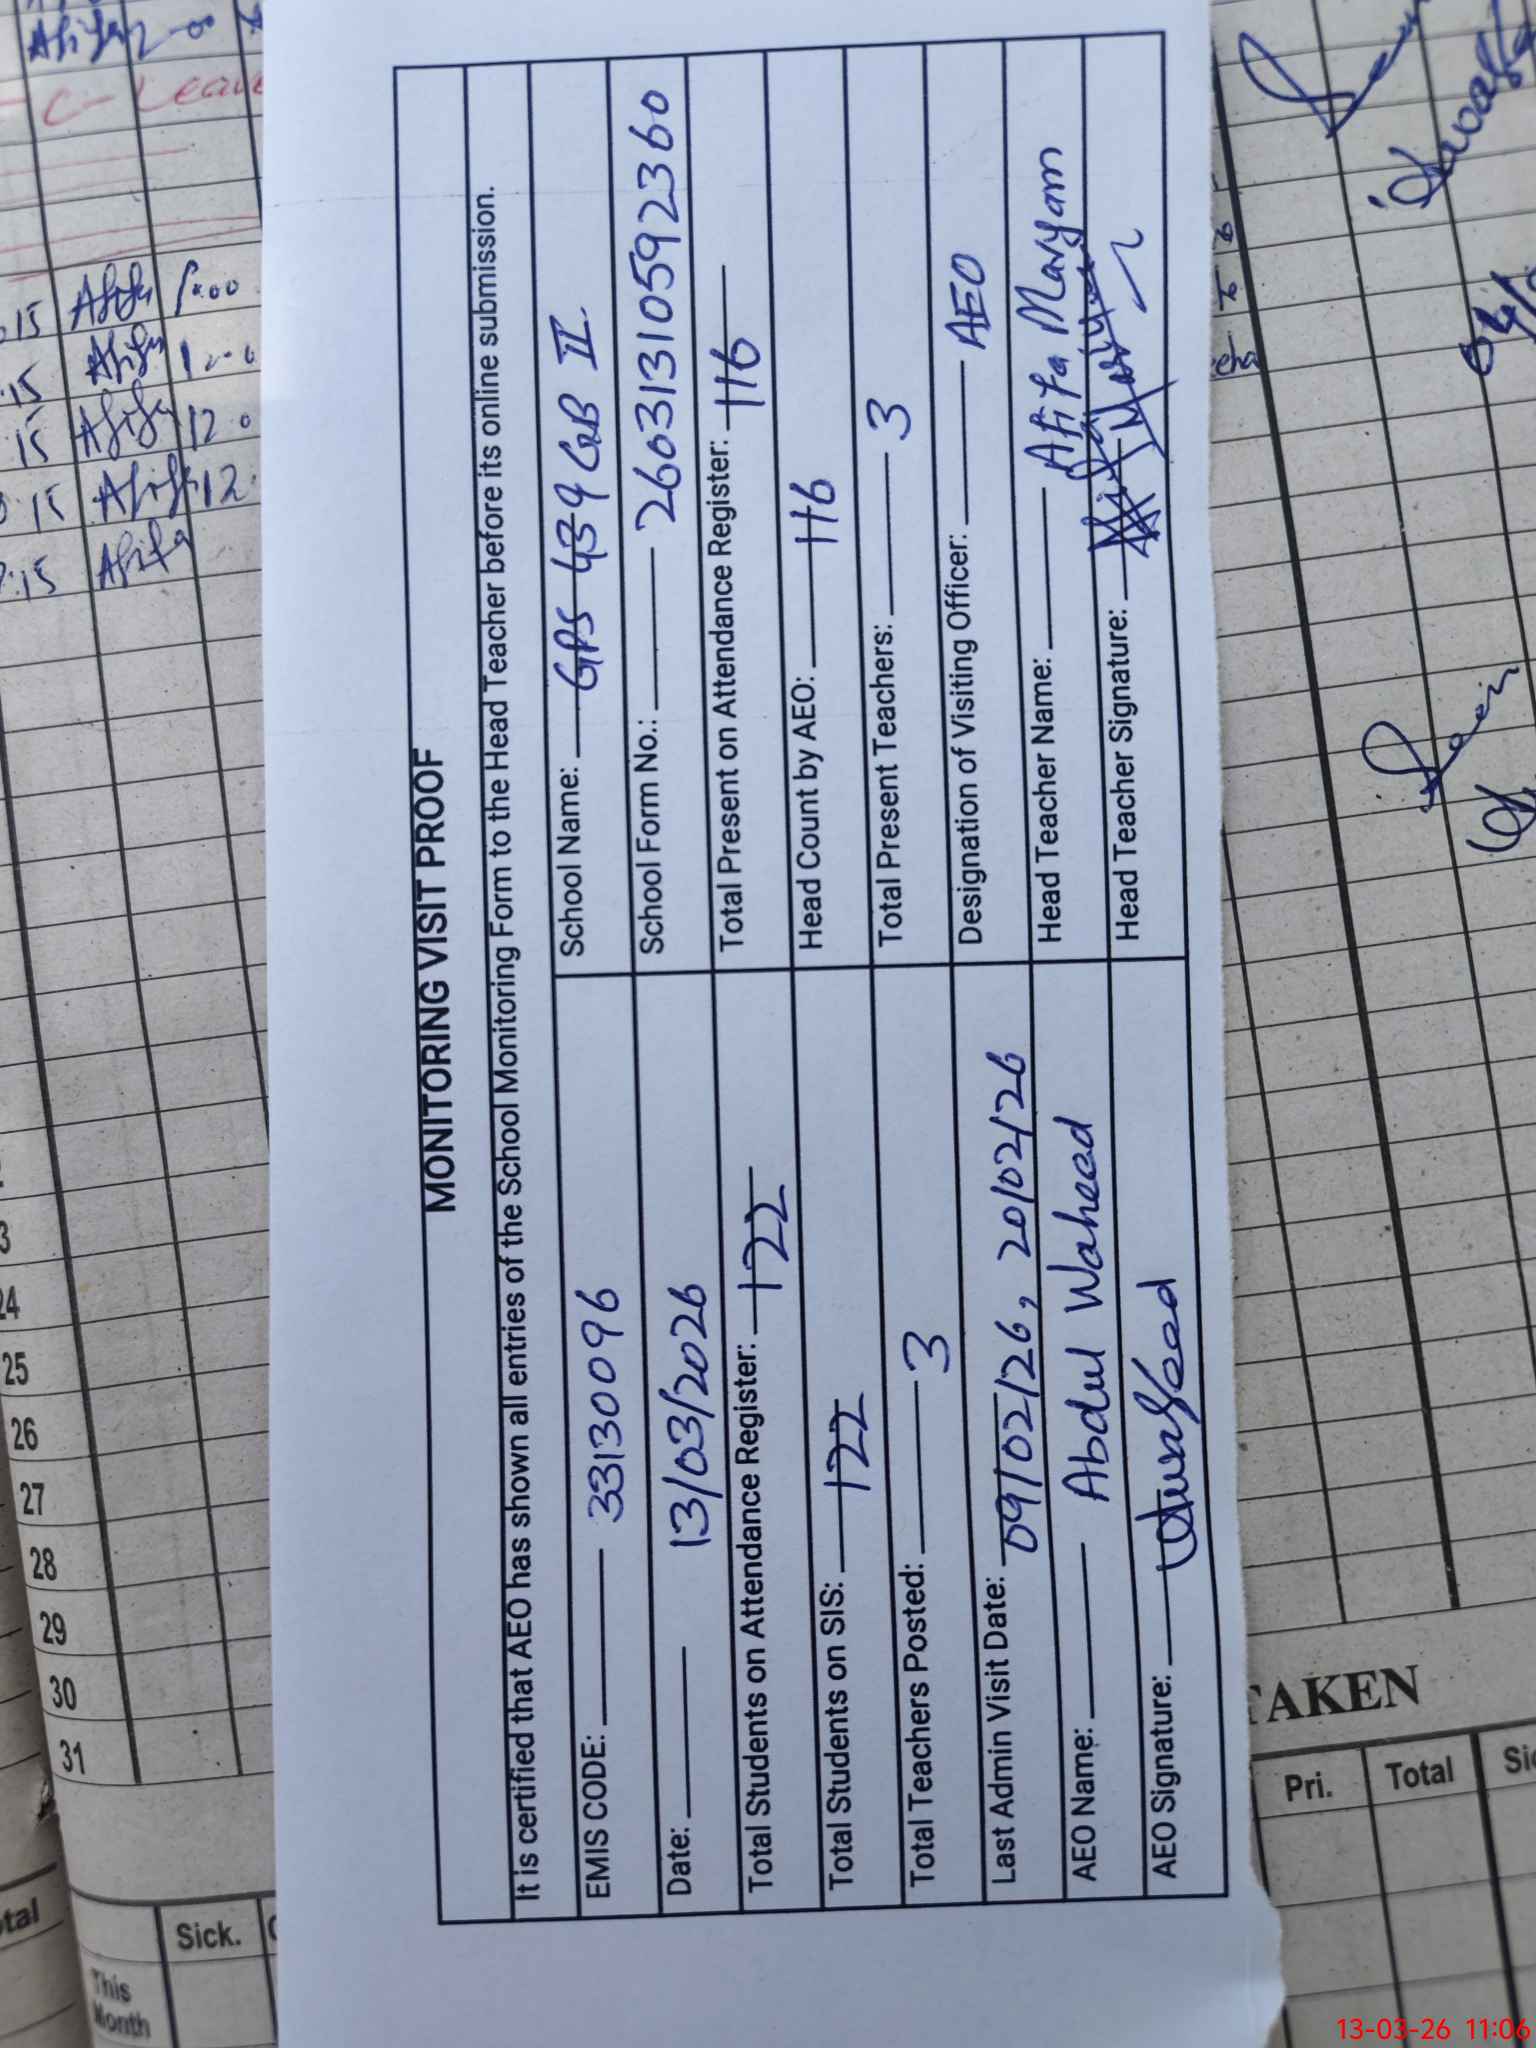 MONITORING VISIT PROOF
It is certified that AEO has shown all entries of the School Monitoring Form to the Head Teacher before its online submission.
EMIS CODE: 33130096
School Name: GPS 439 GB II
Date: 13/03/2026
School Form No.: 26031310592360
Total Students on Attendance Register: 122
Total Present on Attendance Register: 116
Total Students on SIS: 122
Head Count by AEO: 116
Total Teachers Posted: 3
Total Present Teachers: 3
Last Admin Visit Date: 09/02/26, 20/02/26
Designation of Visiting Officer: AEO
AEO Name: Abdul Waheed
Head Teacher Name: Afifa Maryam
AEO Signature:
Head Teacher Signature:
C-Leave
15 Afifa
15 Afifa
15 Afifa 12
15 Afifa 12
:15 Afifa
24
25
26
27
28
29
30
31
This Month
Sick.
TAKEN
Pri.
Total
13-03-26 11:06